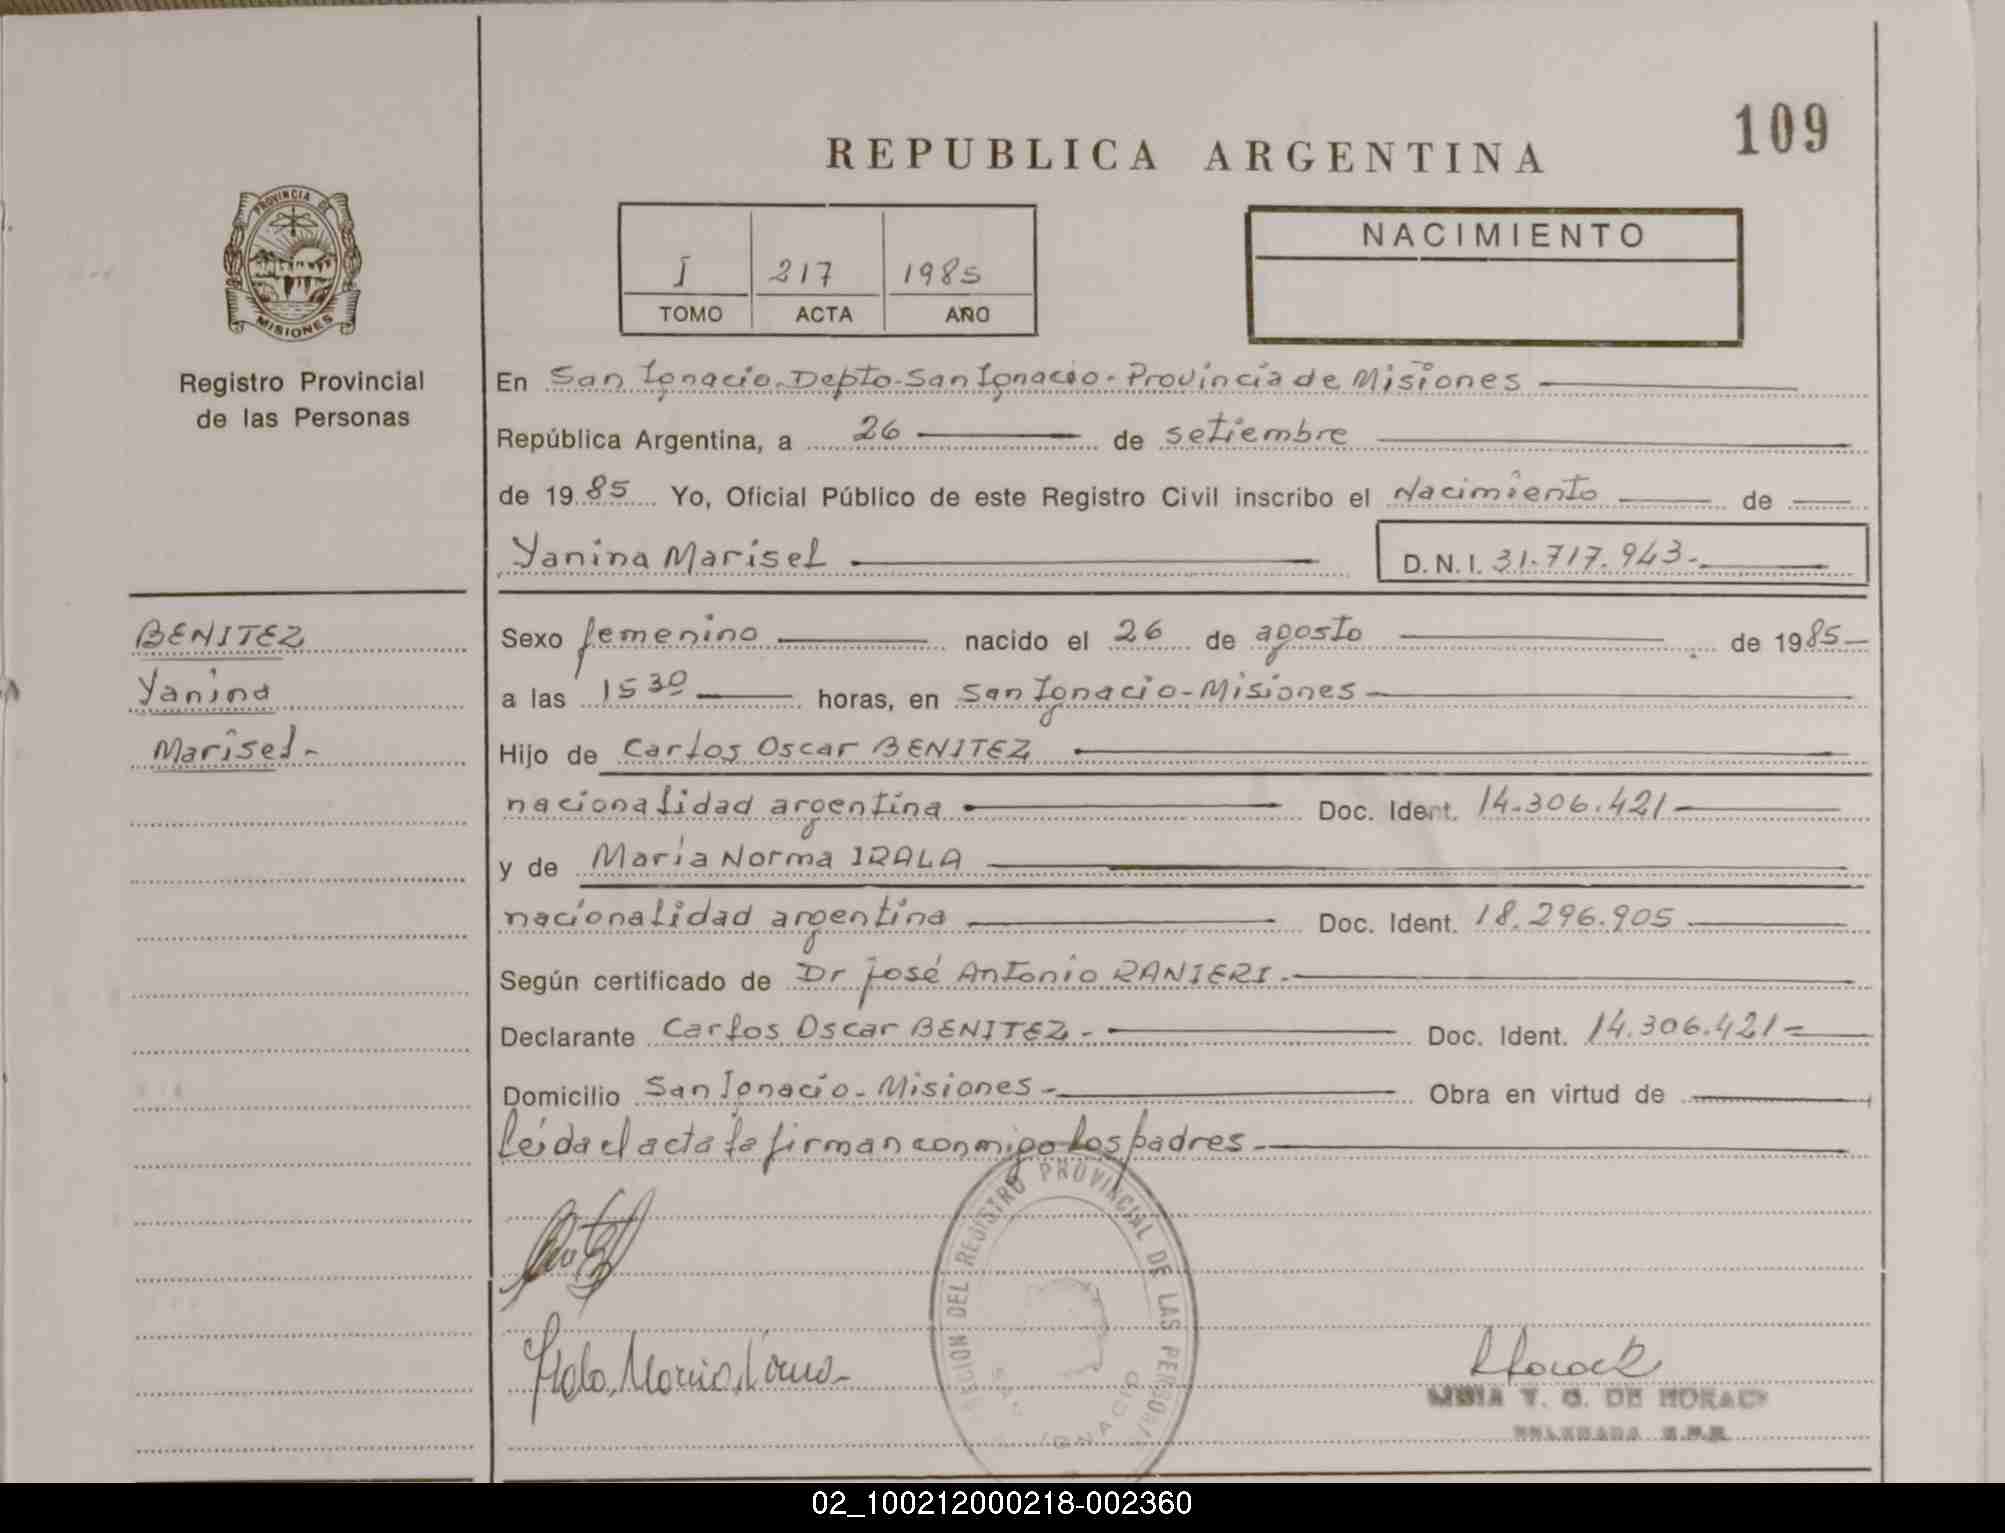 109
REPUBLICA ARGENTINA
PROVINCIA DE
MISIONES
Registro Provincial
de las Personas
I 217 1985
TOMO ACTA AÑO
NACIMIENTO
En San Ignacio. Depto. San Ignacio - Provincia de Misiones
República Argentina, a 26 de setiembre
de 1985 Yo, Oficial Público de este Registro Civil inscribo el Nacimiento de
Yanina Marisel D.N.I. 31.717.943.-
BENITEZ
Yanina
Marisel-
Sexo femenino nacido el 26 de agosto de 1985
a las 15 30 horas, en San Ignacio - Misiones
Hijo de Carlos Oscar BENITEZ
nacionalidad argentina Doc. Ident. 14.306.421
y de María Norma IRALA
nacionalidad argentina Doc. Ident. 18.296.905
Según certificado de Dr José Antonio RANIERI.-
Declarante Carlos Oscar BENITEZ.- Doc. Ident. 14.306.421
Domicilio San Ignacio - Misiones - Obra en virtud de
leída el acta la firman conmigo los padres
DEL REGISTRO PROVINCIAL DE LAS PERSONAS
SAN IGNACIO
Irala, Maria Norma
V. G. DE HORACK
DELEGADA
02_100212000218-002360